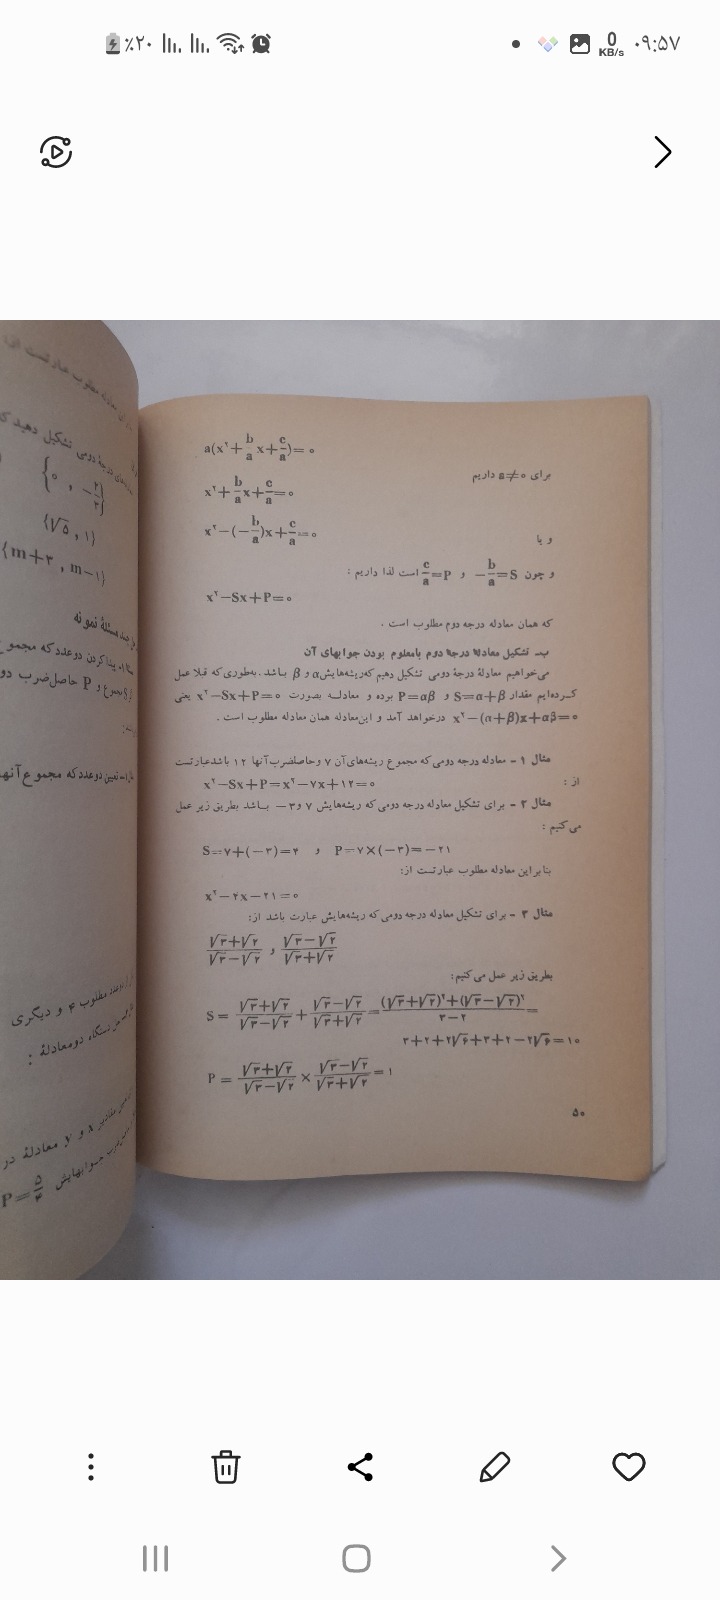 ٪۲۰
0 KB/s
۰۹:۵۷
a(x²+b/a x+c/a)=۰
برای a≠۰ داریم
x²+b/a x+c/a=۰
و یا
x²−(−b/a)x+c/a=۰
و چون −b/a=S و c/a=P است لذا داریم :
x²−Sx+P=۰
که همان معادله درجه دوم مطلوب است .
ب‌ـ تشکیل معادلهٔ درجهٔ دوم بامعلوم بودن جوابهای آن
می‌خواهیم معادلهٔ درجهٔ دومی تشکیل دهیم که‌ریشه‌هایش α و β باشد . به‌طوری‌که قبلا عمل
کرده‌ایم مقدار S=α+β و P=αβ بوده و معادله بصورت x²−Sx+P=۰ یعنی
x²−(α+β)x+αβ=۰ درخواهد آمد و این‌معادله همان معادله مطلوب است .
مثال ۱ - معادله درجه دومی‌که مجموع ریشه‌های‌آن ۷ وحاصلضرب‌آنها ۱۲ باشدعبارتست
از :
x²−Sx+P=x²−۷x+۱۲=۰
مثال ۲ - برای تشکیل معادله درجه دومی‌که ریشه‌هایش ۷ و۳− باشد بطریق زیر عمل
می‌کنیم :
S=۷+(−۳)=۴ و P=۷×(−۳)=−۲۱
بنابراین معادله مطلوب عبارتست از:
x²−۴x−۲۱=۰
مثال ۳ - برای تشکیل معادله درجه دومی‌که ریشه‌هایش عبارت باشد از:
(√۳+√۲)/(√۳−√۲) , (√۳−√۲)/(√۳+√۲)
بطریق زیر عمل می‌کنیم:
S = (√۳+√۲)/(√۳−√۲) + (√۳−√۲)/(√۳+√۲) = ((√۳+√۲)²+(√۳−√۲)²)/(۳−۲) =
۳+۲+۲√۶+۳+۲−۲√۶=۱۰
P = (√۳+√۲)/(√۳−√۲) × (√۳−√۲)/(√۳+√۲) =۱
۵۰
معادله مطلوب عبارتست از:
درجهٔ دومی تشکیل دهید که
{۰ , −۲/۳}
{√۵ , ۱}
{m+۳ , m−۱}
مسئلهٔ نمونه
پیدا کردن دوعدد که مجموع
مجموع و P حاصل‌ضرب دو
تعیین دوعدد که مجموع آنها
مطلوب ۴ و دیگری
دستگاه دومعادلهٔ :
x و y معادلهٔ در
جوابهایش P=۵/۴